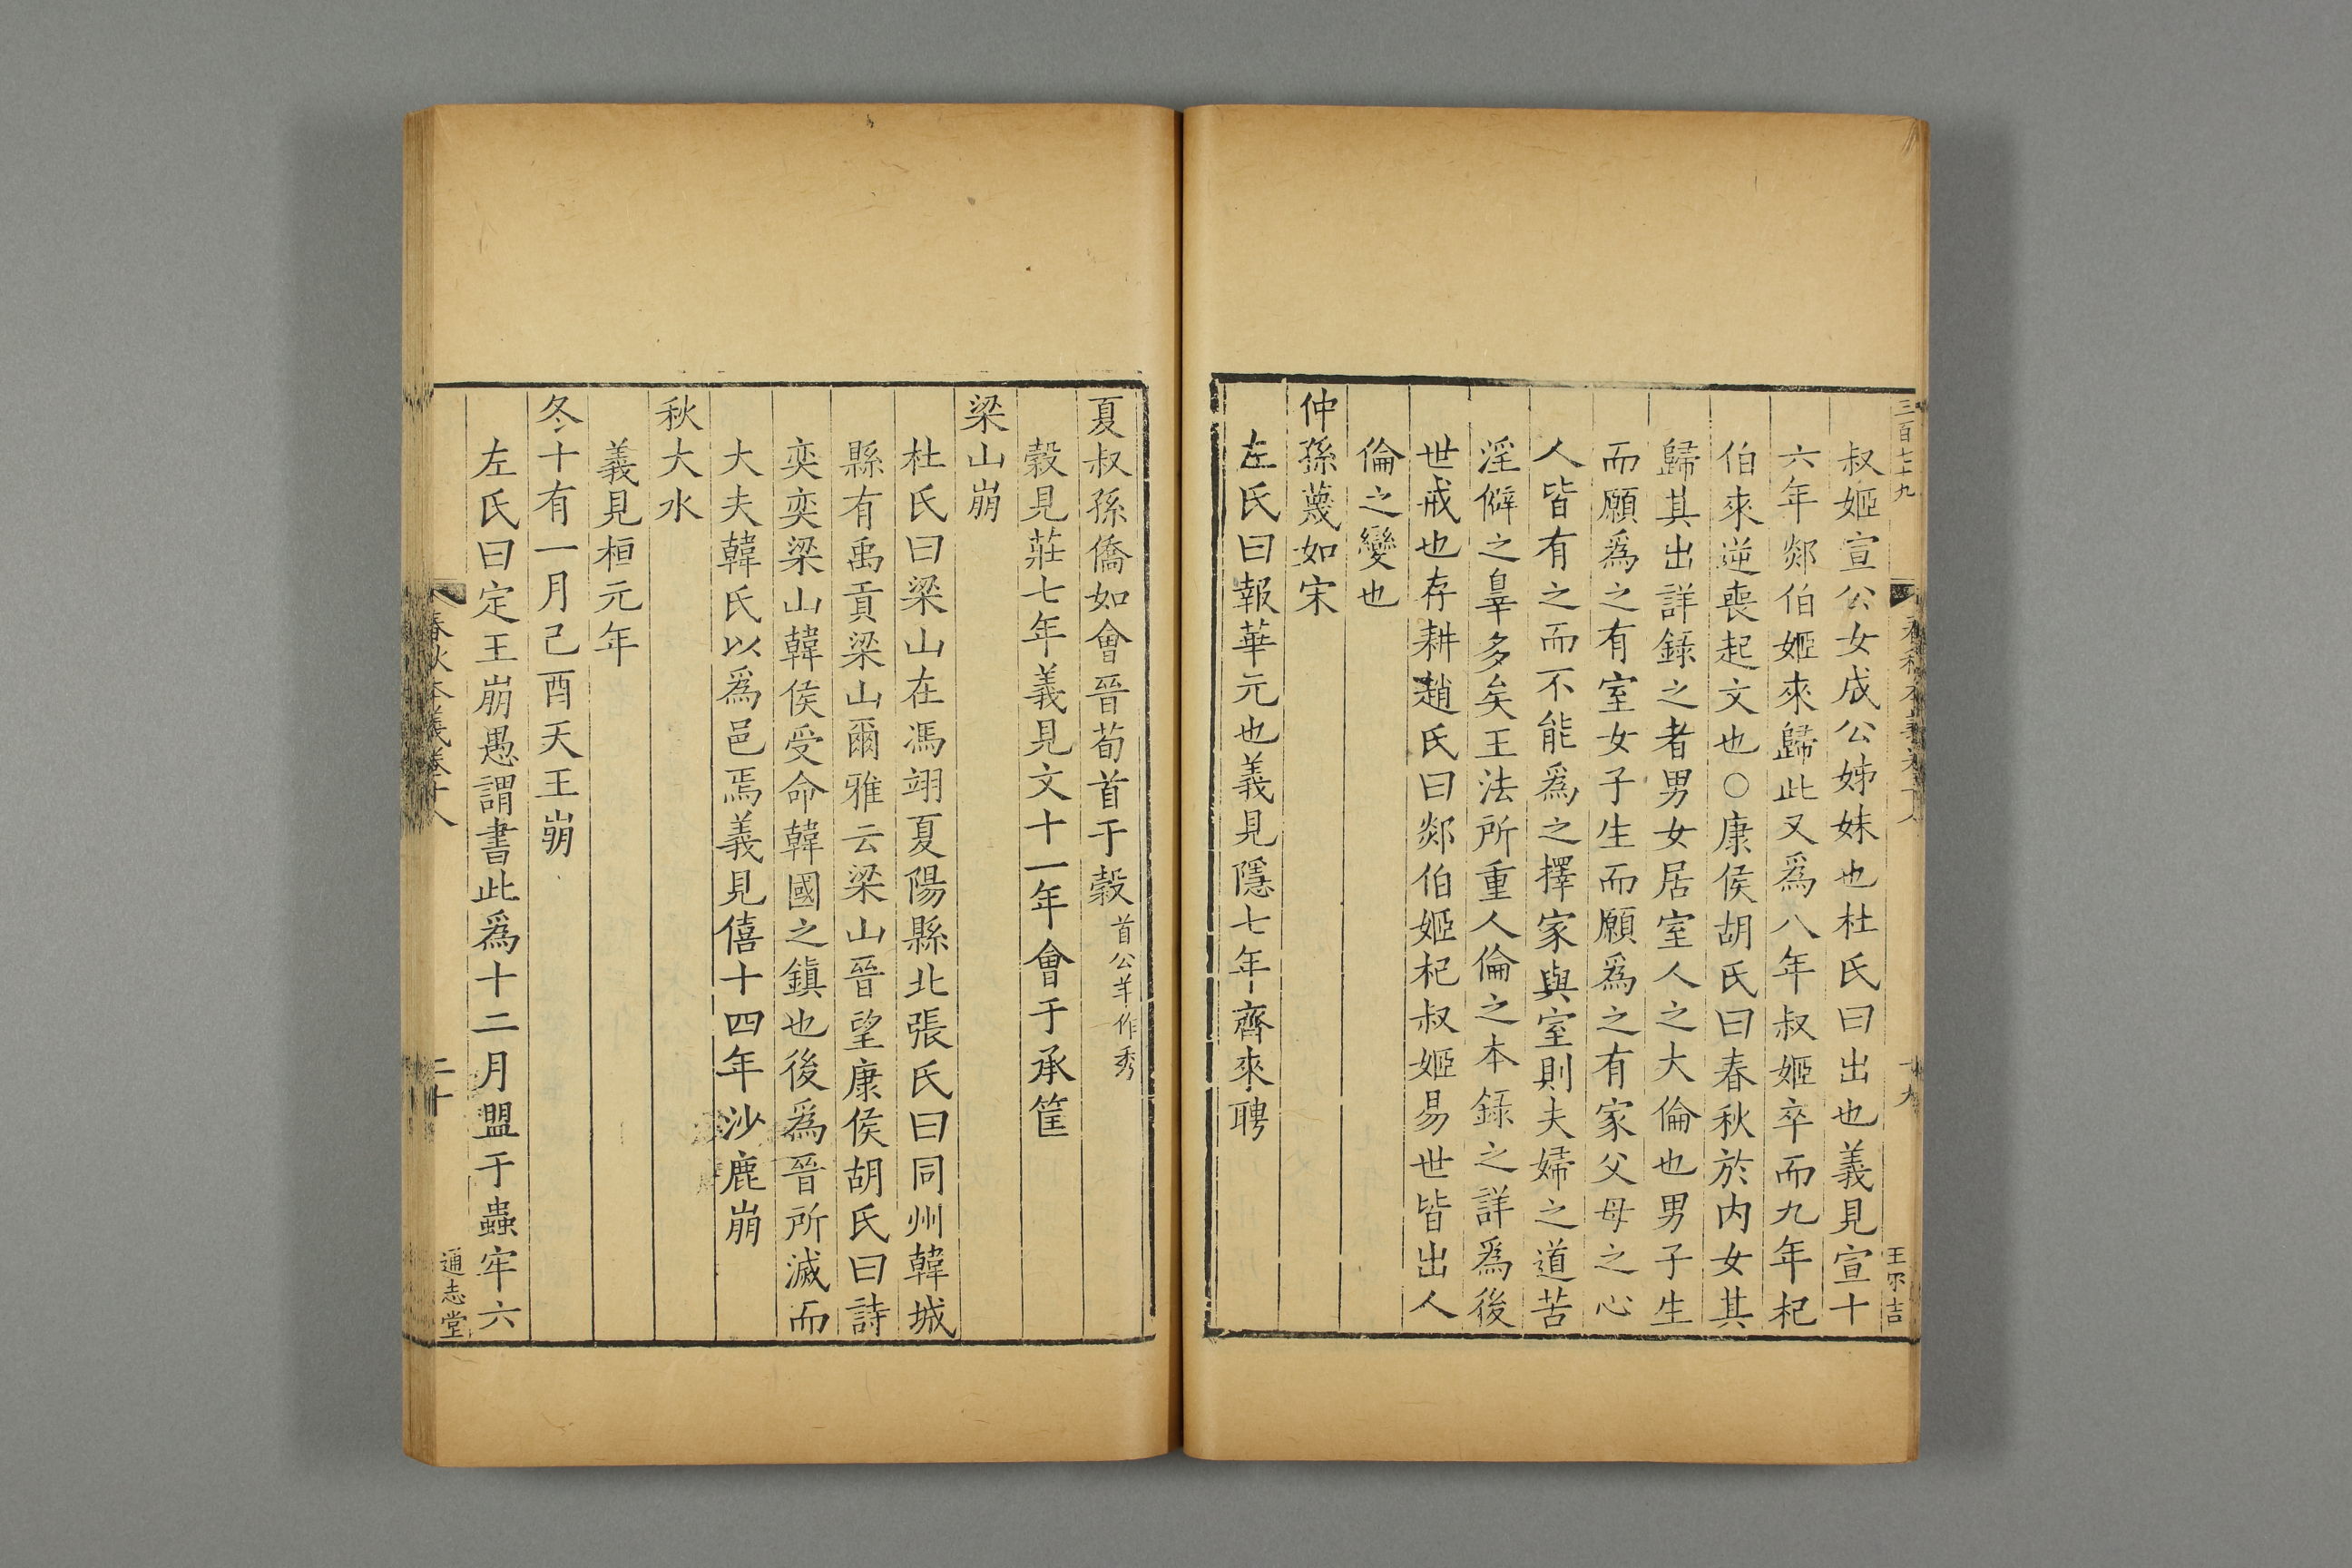 三百七十九
春秋本義卷十八
十九
王尔吉
叔姬宣公女成公姊妹也杜氏曰出也義見宣十
六年郯伯姬來歸此又爲八年叔姬卒而九年杞
伯來逆喪起文也○康侯胡氏曰春秋於内女其
歸其出詳錄之者男女居室人之大倫也男子生
而願爲之有室女子生而願爲之有家父母之心
人皆有之而不能爲之擇家與室則夫婦之道苦
淫僻之辠多矣王法所重人倫之本錄之詳爲後
世戒也存耕趙氏曰郯伯姬杞叔姬易世皆出人
倫之變也
仲孫蔑如宋
左氏曰報華元也義見隱七年齊來聘
夏叔孫僑如會晉荀首于穀首公羊作秀
穀見莊七年義見文十一年會于承筐
梁山崩
杜氏曰梁山在馮翊夏陽縣北張氏曰同州韓城
縣有禹貢梁山爾雅云梁山晉望康侯胡氏曰詩
奕奕梁山韓侯受命韓國之鎭也後爲晉所滅而
大夫韓氏以爲邑焉義見僖十四年沙鹿崩
秋大水
義見桓元年
冬十有一月己酉天王崩
左氏曰定王崩愚謂書此爲十二月盟于蟲牢六
春秋本義卷十八
二十
通志堂